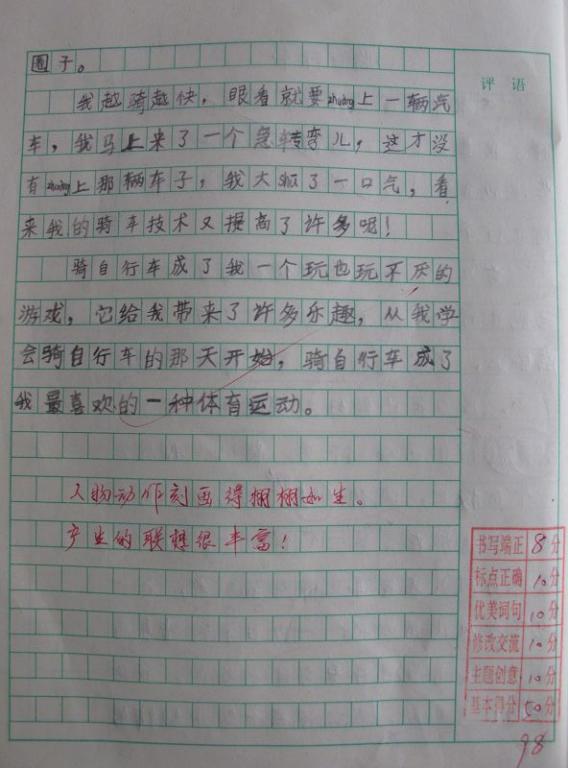 圈子。
评语
我越骑越快，眼看就要zhuàng上一辆汽
车，我马上来了一个急转弯儿，这才没
有zhuàng上那辆车子，我大shū了一口气，看
来我的骑车技术又提高了许多呢！
骑自行车成了我一个玩也玩不厌的
游戏，它给我带来了许多乐趣，从我学
会骑自行车的那天开始，骑自行车成了
我最喜欢的一种体育运动。
人物动作刻画得栩栩如生。
产生的联想很丰富！
书写端正 8分
标点正确 10分
优美词句 10分
修改交流 10分
主题创意 10分
基本得分 50分
98